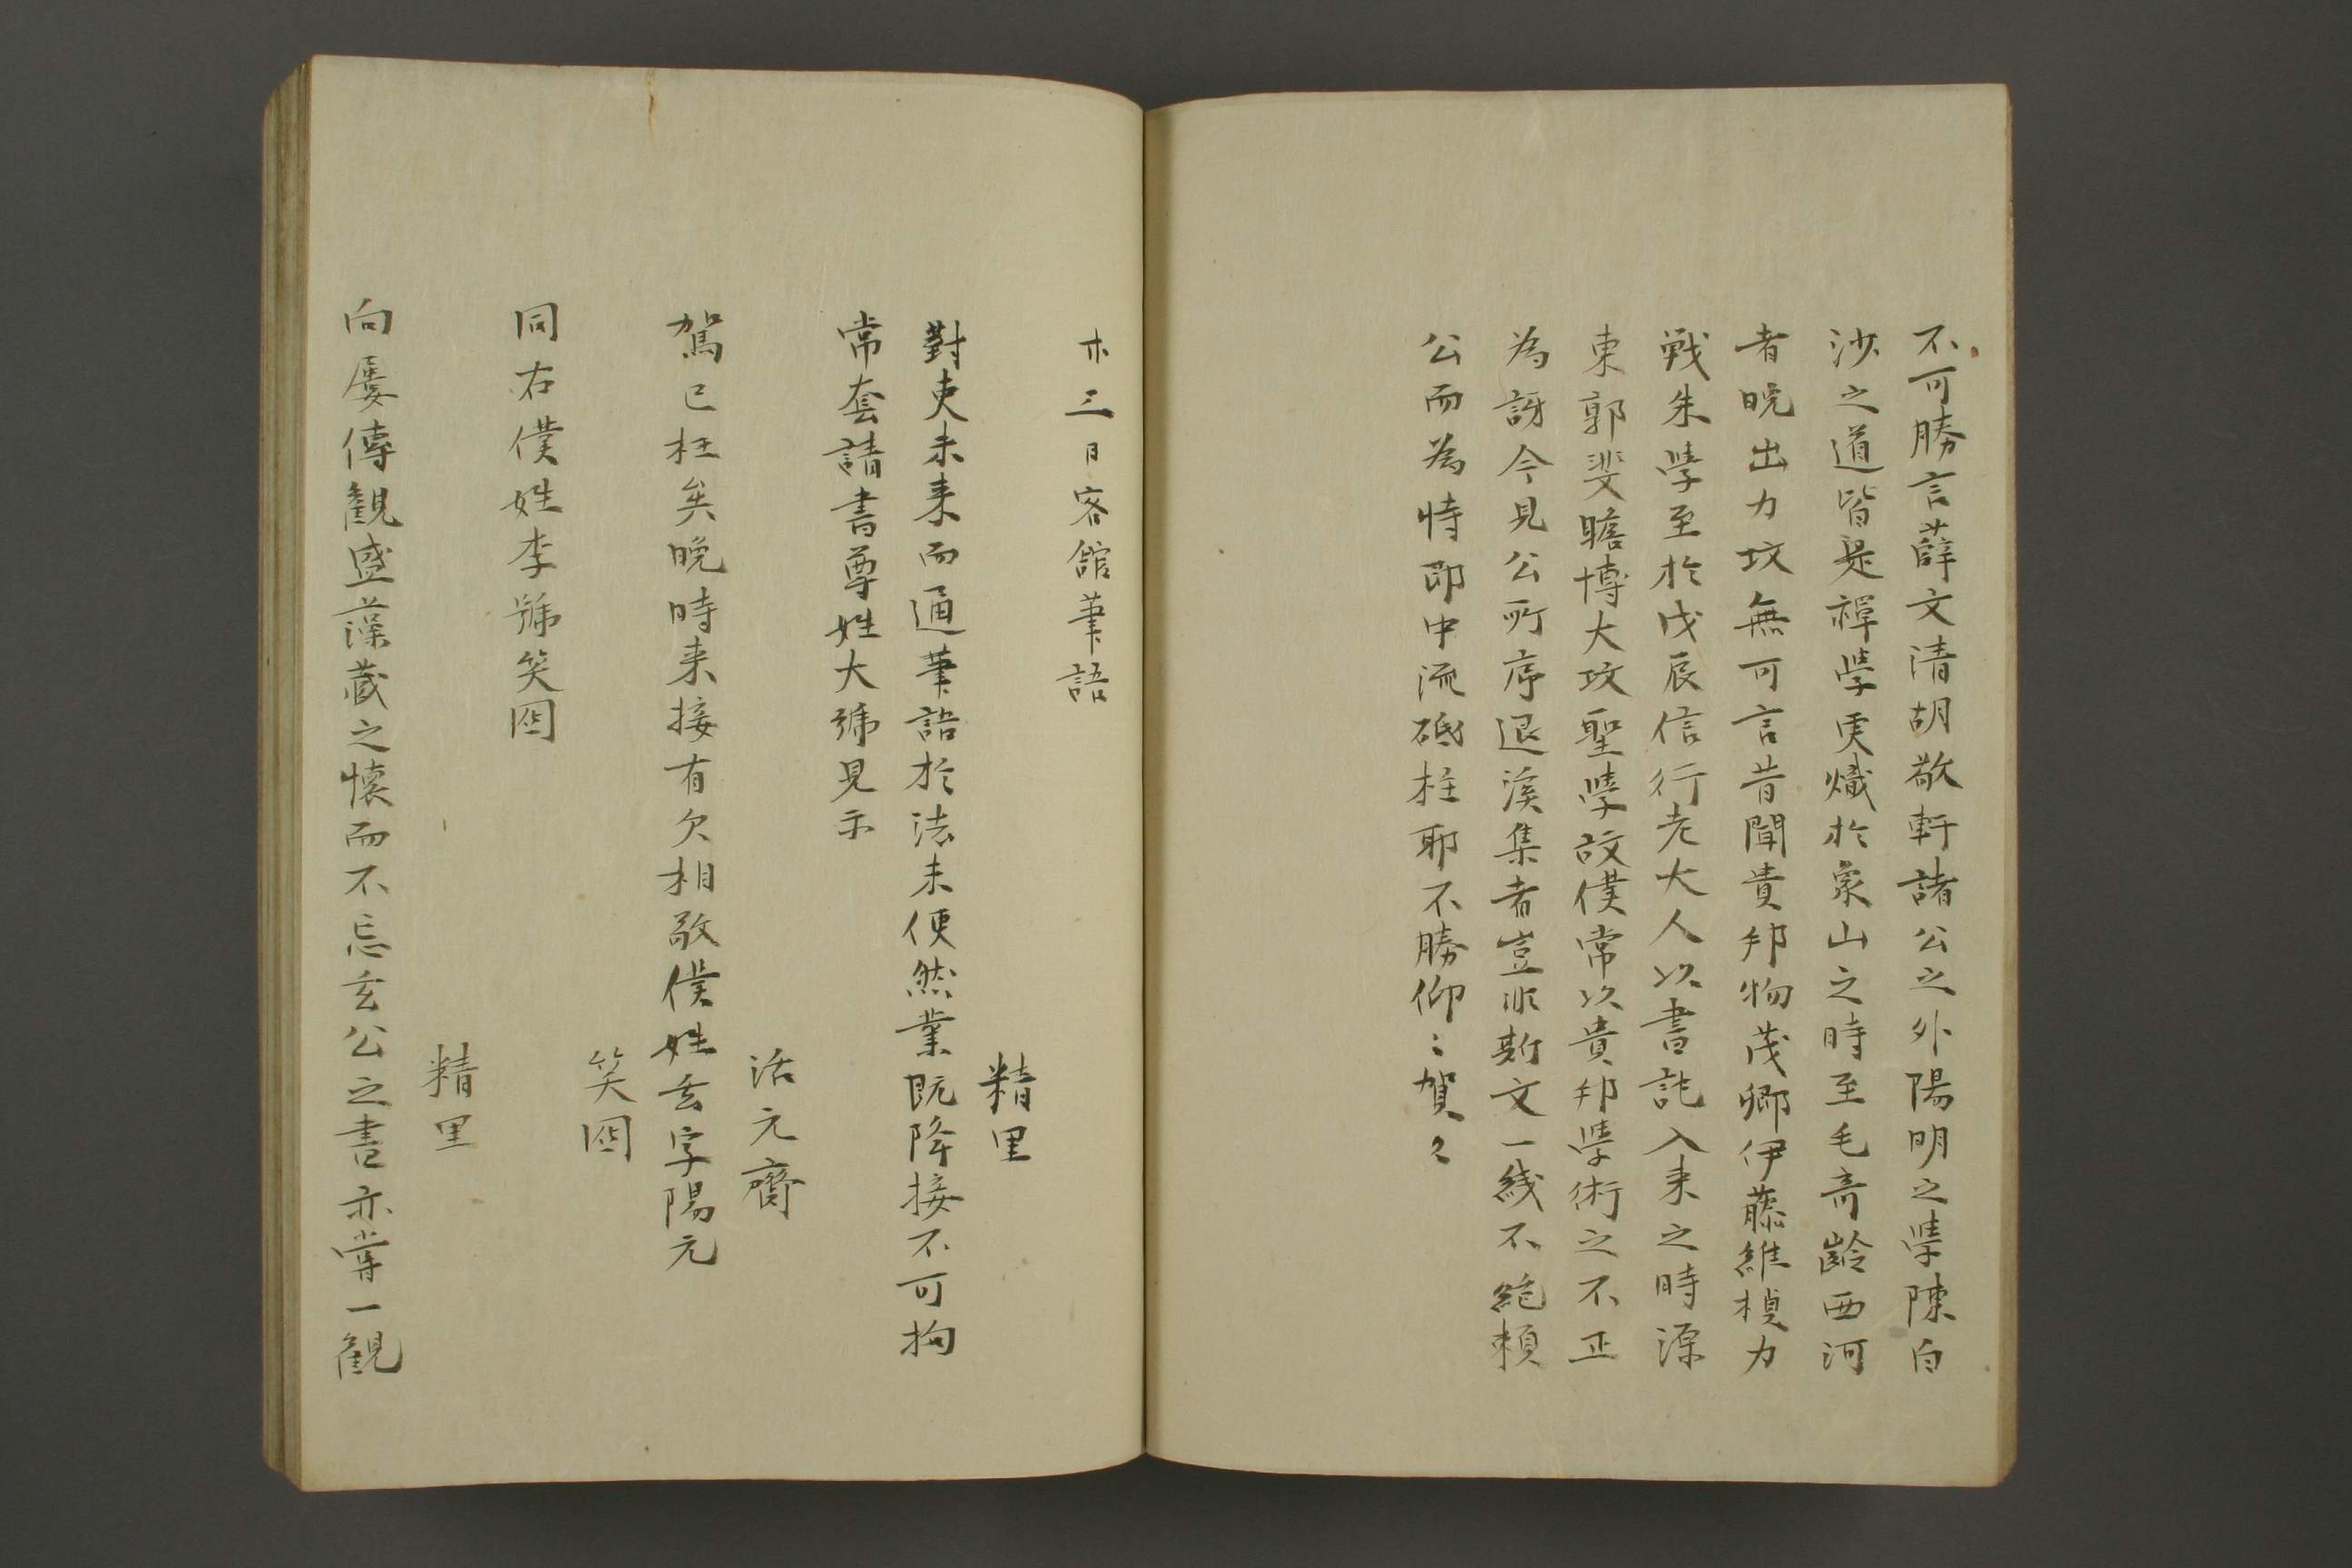 不可勝言薛文清胡敬軒諸公之外陽明之學陳白
沙之道皆是禪學更熾於象山之時至毛奇齡西河
者晚出力攻無可言昔聞貴邦物茂卿伊藤維楨力
戦朱學至於戊辰信行老大人以書託入来之時源
東郭斐瞻博大攻聖學故僕常以貴邦學術之不正
為訝今見公所序退溪集者豈非斯文一綫不絶頼
公而為恃即中流砥柱耶不勝仰〻賀〻
廿三日客館筆語
精里
對吏未来而通筆語於法未便然業既降接不可拘
常套請書尊姓大號見示
活元齋
駕已枉矣晩時来接有欠相敬僕姓玄字陽元
笑囮
同右僕姓李號笑囮
精里
向屡傳観盛藻蔵之懐而不忘玄公之書亦嘗一観